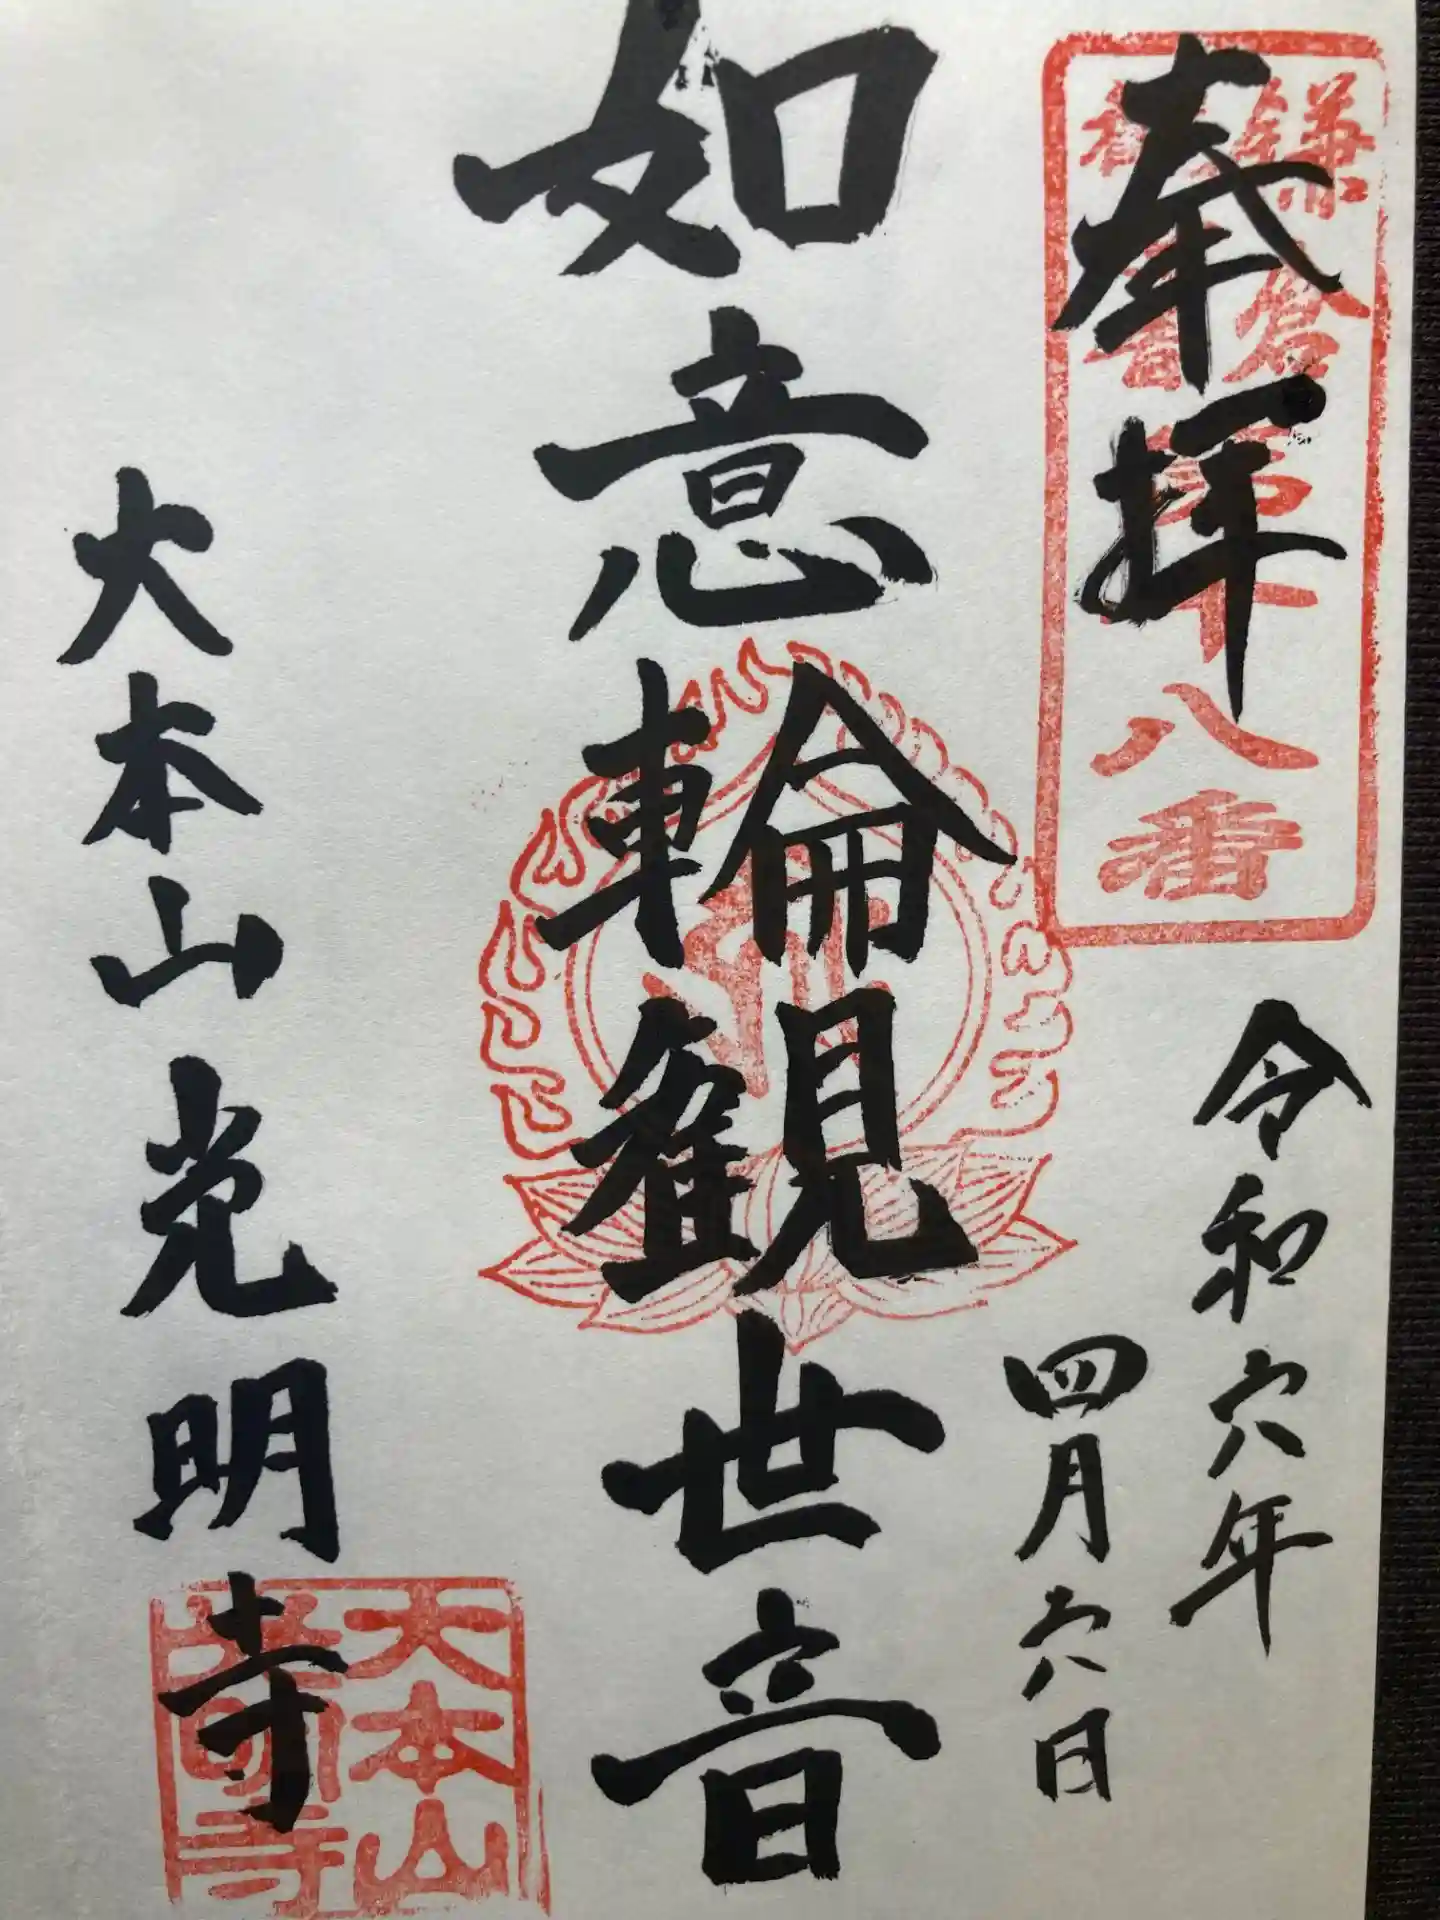 奉拝
鎌倉
観音第十八番
令和六年
四月六日
如意輪観世音
大本山光明寺
大本山
光明寺